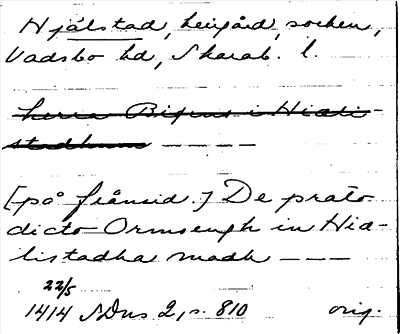 Hjälstad, herrgård, socken,
Vadsbo hd, Skarab. l.
herra Bispens i Hiäli-
stadhum — — — —
[på frånsid.] De prato
dicto Ormsengh in Hiä-
listadha madh — — —
22/5
1414 SDns 2, s. 810 orig.